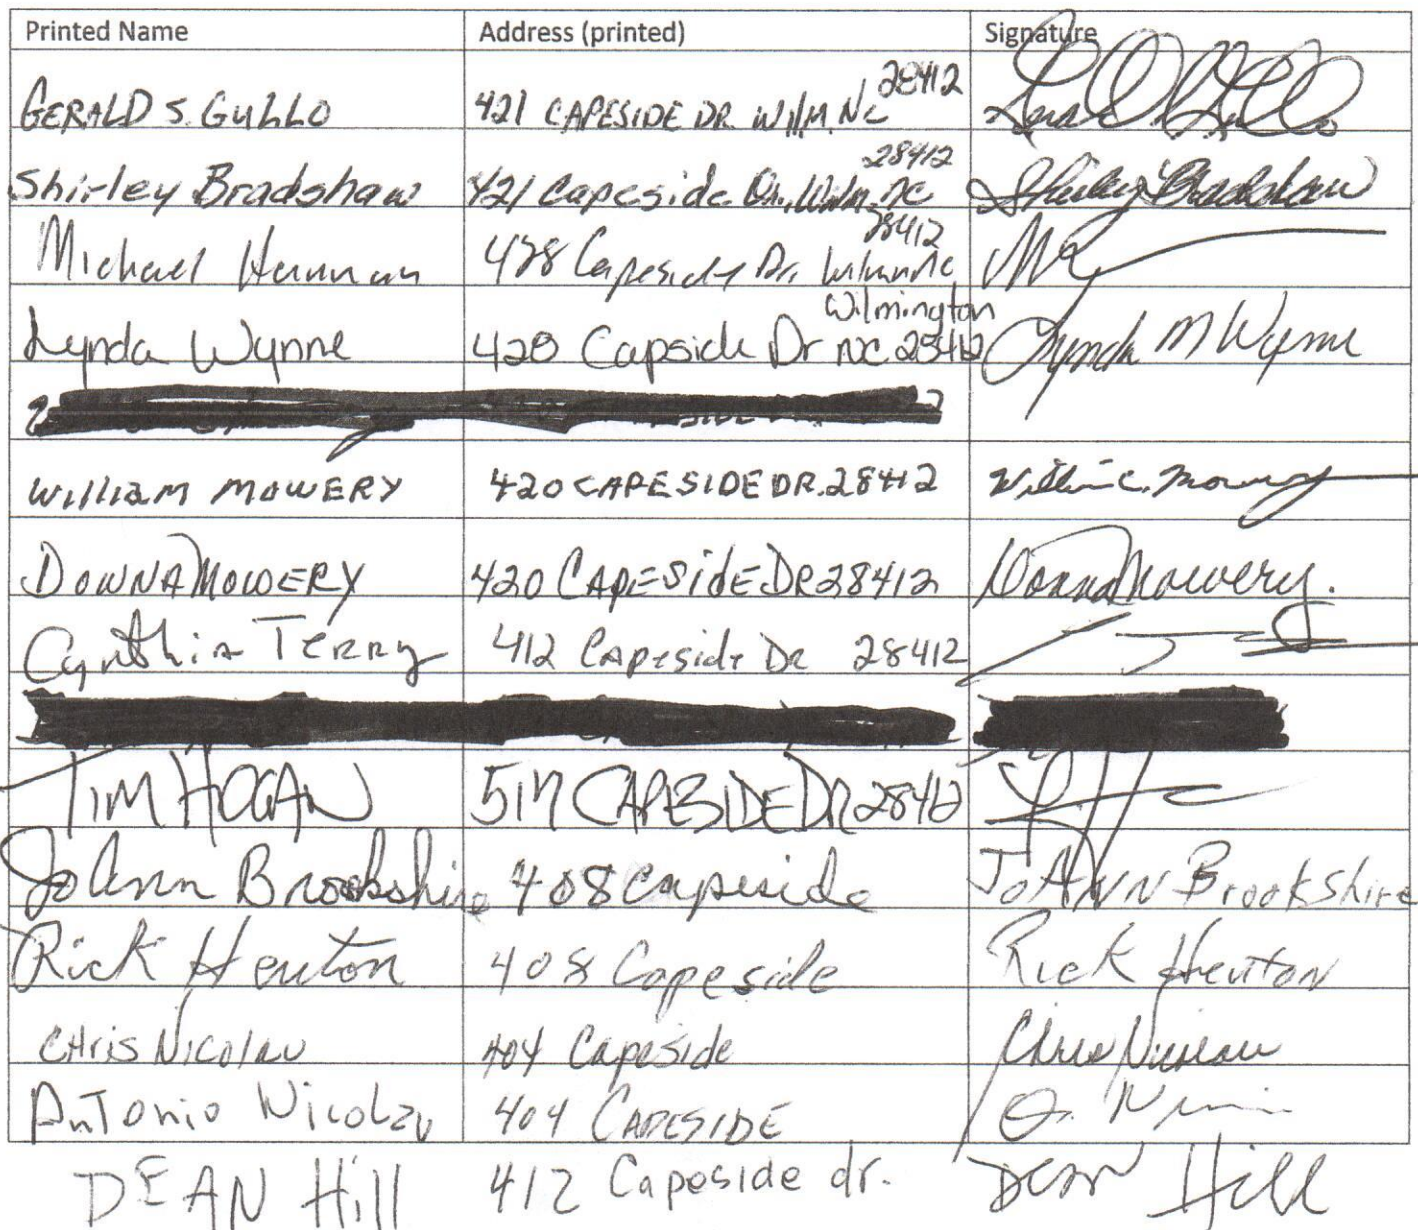 Printed Name Address (printed) Signature
28412
GERALD S. GULLO 421 CAPESIDE DR. WILM. NC
28412
Shirley Bradshaw 421 Capeside Dr., Wilm. NC Shirley Bradshaw
28412
Michael 428 Capeside Dr.
Wilmington
Lynda Wynne 428 Capside Dr NC 28412 Lynda M Wynne
William MOWERY 420 CAPESIDE DR. 28412 William C. Mowery
DONNA MOWERY 420 CAPESidE DR 28412 Donna Mowery.
Cynthia Terry 412 Capeside Dr 28412
TIM HOGAN 517 CAPESIDE DR 28412
JoAnn Brookshire 408 Capeside JoAnn Brookshire
Rick Henton 408 Capeside Rick Henton
CHris Nicolau 404 Capeside Chris Nicolau
AnTonio Nicolau 404 CAPESIDE
DEAN Hill 412 Capeside dr. Dean Hill